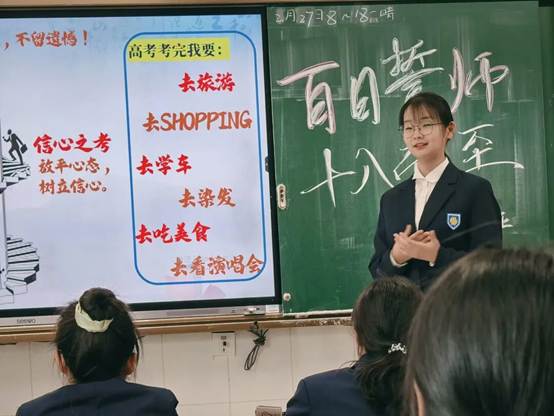 ，不留遗憾！
信心之考
放平心态，
树立信心。
高考考完我要：
去旅游
去SHOPPING
去学车
去染发
去吃美食
去看演唱会
百日誓师
十八
至